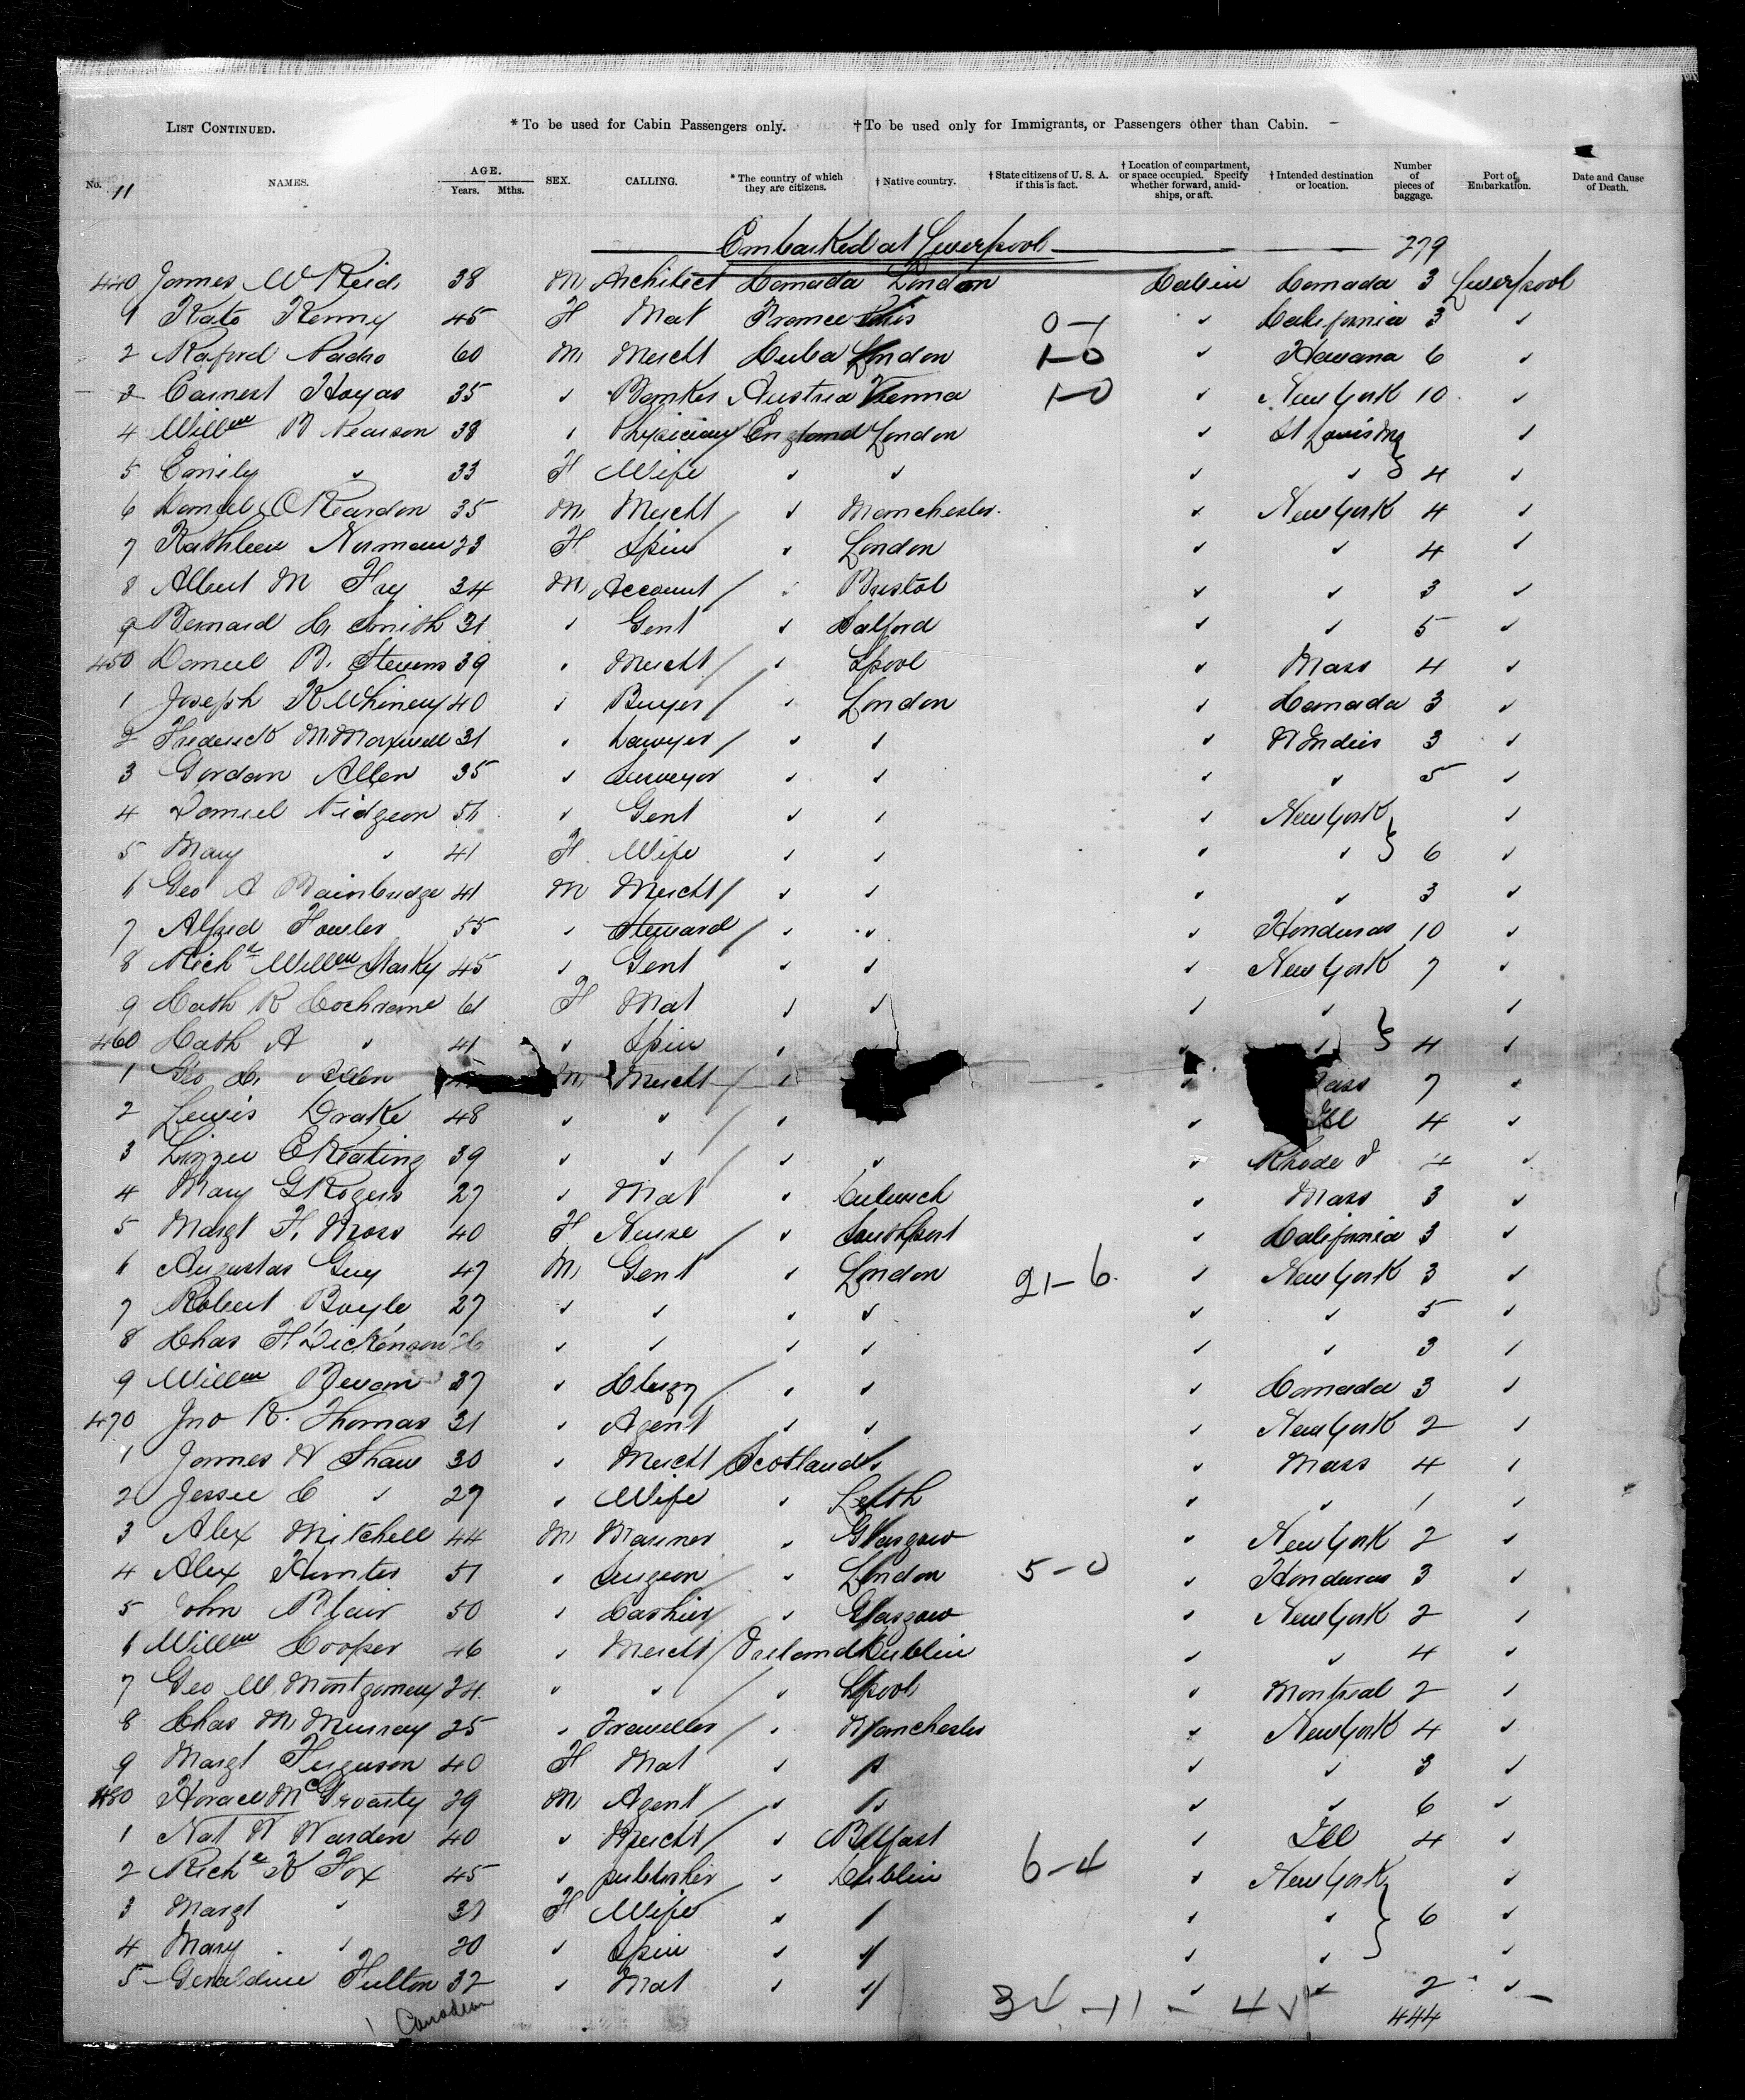 LIST CONTINUED. * To be used for Cabin Passengers only. † To be used only for Immigrants, or Passengers other than Cabin.
No. 11 NAMES. AGE. Years. Mths. SEX. CALLING. * The country of which they are citizens. † Native country. † State citizens of U. S. A. if this is fact. † Location of compartment, or space occupied. Specify whether forward, amidships, or aft. † Intended destination or location. Number of pieces of baggage. Port of Embarkation. Date and Cause of Death.
Embarked at Liverpool 279
440 James W Reid 38 M Architect Canada London Cabin Canada 3 Liverpool
1 Kate Kenny 45 F Mat France Paris 0-1 " California 3 "
2 Raford 60 M Mercht Cuba London 1-0 " Havana 6 "
3 Earnest Hoyas 35 " Banker Austria Vienna 1-0 " New York 10 "
4 Willm R Pearson 38 " Physician England London " St Louis Mo "
5 Emily " 33 F Wife " " " " 4 "
6 Daniel O Reardon 35 M Mercht " Manchester " New York 4 "
7 Kathleen Norman 23 F Spin " London " " 4 "
8 Albert M Fry 34 M Account " Bristol " " 3 "
9 Bernard C. Smith 31 " Gent " Salford " " 5 "
450 Daniel B. Stevens 39 " Mercht " Lpool " Mass 4 "
1 Joseph K Whinery 40 " Buyer " London " Canada 3 "
2 Frederick M. Maxwell 31 " Lawyer " " " W Indies 3 "
3 Gordon Allen 35 " Surveyor " " " " 5 "
4 Daniel Pidgeon 51 " Gent " " " New York "
5 Mary " 41 F Wife " " " " 6 "
6 Geo A Bainbridge 41 M Mercht " " " " 3 "
7 Alfred Fowler 55 " Steward " " " Honduras 10 "
8 Richd Willm Starky 45 " Gent " " " New York 7 "
9 Cath R Cochrane 61 F Mat " " " " "
460 Cath A " 41 " Spin " " " 4 "
1 Geo C. Allen M Mercht " " ass 7 "
2 Lewis Drake 48 " " " " Ill 4 "
3 Lizzie E Keating 39 " " " " " Rhode I 4 "
4 Mary G Rogers 27 " Mat " " Mass 3 "
5 Margt F. Moss 40 F Nurse " Southport " California 3 "
6 Augustas Guy 47 M Gent " London 21-6 " New York 3 "
7 Robert Boyle 27 " " " " " " 5 "
8 Chas F Dickenson " " " " " " 3 "
9 Willm Bevan 37 " Clergy " " " Canada 3 "
470 Jno R. Thomas 31 " Agent " " " New York 2 "
1 James W Shaw 30 " Mercht Scotland " " Mass 4 "
2 Jessie C " 27 " Wife " Leith " " 1 "
3 Alex Mitchell 44 M Mariner " Glasgow " New York 2 "
4 Alex Hunter 51 " Surgeon " London 5-0 " Honduras 3 "
5 John Blair 50 " Cashier " Glasgow " New York 2 "
6 Willm Cooper 46 " Mercht Ireland Dublin " " 4 "
7 Geo W Montgomery 24 " " " Lpool " Montreal 2 "
8 Chas M Murray 25 " Traveller " Manchester " New York 4 "
9 Margt Ferguson 40 F Mat " " " " 3 "
480 Horace McGroarty 29 M Agent " " " " 6 "
1 Nat W Warden 40 " Mercht " Belfast " Ill 4 "
2 Richd K Fox 45 " publisher " Dublin 6-4 " New York "
3 Margt " 37 F Wife " " " " 6 "
4 Mary " 20 " Spin " " " " "
5 Geraldine Fulton 32 " Mat " " " " 2 "
1 Canadian 34-11-45 444